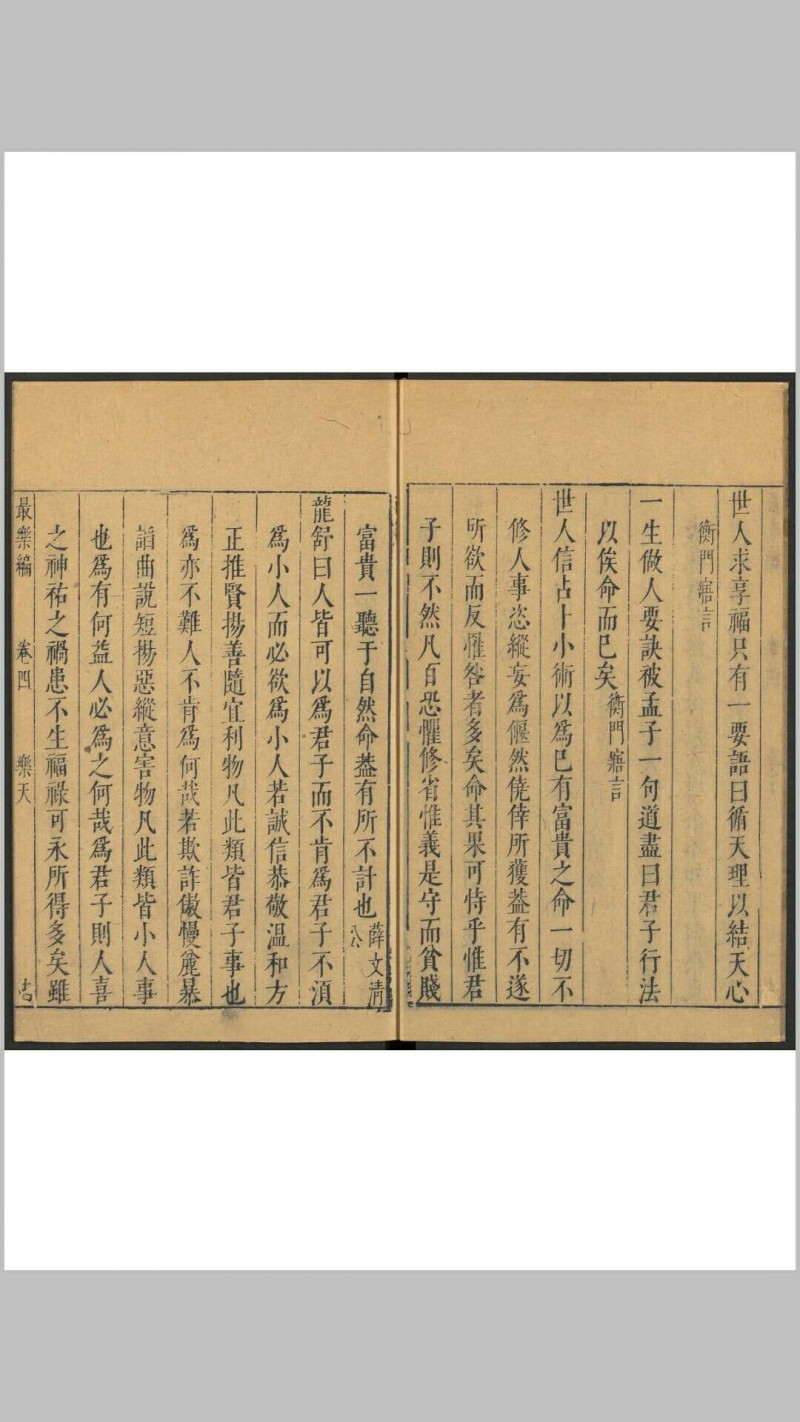 世人求享福只有一要語曰循天理以結天心
衡門寤言
一生做人要訣被孟子一句道盡曰君子行法
以俟命而已矣衡門寤言
世人信占卜小術以爲已有富貴之命一切不
修人事恣縱妄爲偃然僥倖所獲葢有不遂
所欲而反罹咎者多矣命其果可恃乎惟君
子則不然凡百恐懼修省惟義是守而貧賤
富貴一聽于自然命葢有所不計也薛文清公
龍舒曰人皆可以爲君子而不肯爲君子不須
爲小人而必欲爲小人若誠信恭敬温和方
正推賢揚善隨宜利物凡此類皆君子事也
爲亦不難人不肯爲何哉若欺詐傲慢麄暴
謟曲說短揚惡縱意害物凡此類皆小人事
也爲有何益人必爲之何哉爲君子則人喜
之神祐之禍患不生福祿可永所得多矣雖
最樂編 卷四 樂天